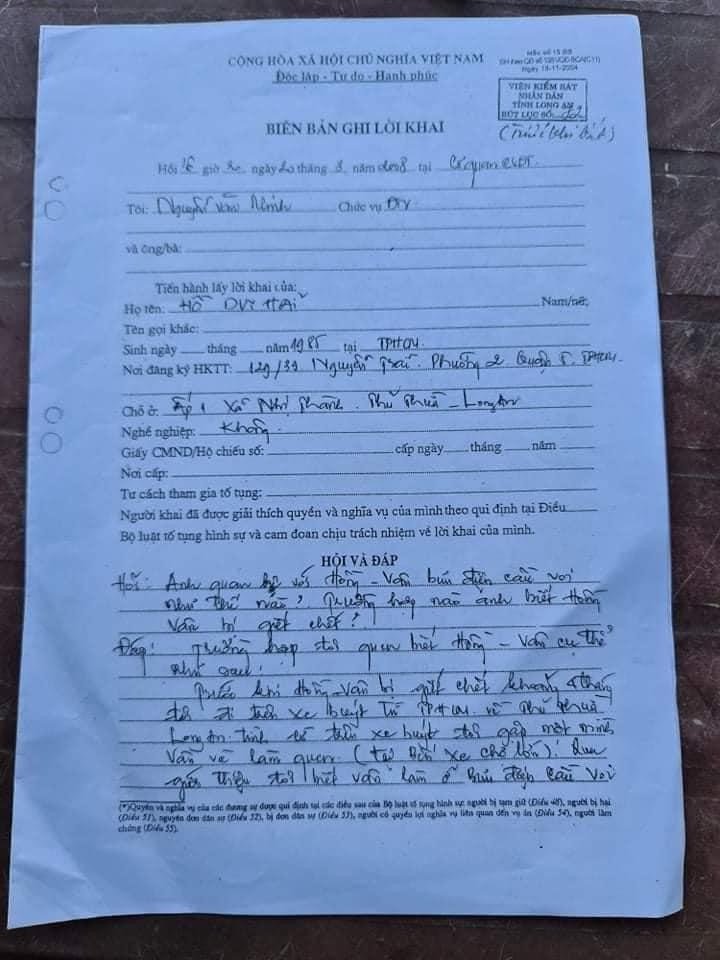 CỘNG HÒA XÃ HỘI CHỦ NGHĨA VIỆT NAM
Độc lập - Tự do - Hạnh phúc
Mẫu số 15 BB
BH theo QĐ số 1351/QĐ-BCA(C11)
Ngày 18-11-2004
VIỆN KIỂM SÁT
NHÂN DÂN
TỈNH LONG AN
BÚT LỤC SỐ:
BIÊN BẢN GHI LỜI KHAI
Hồi 16 giờ 30 ngày 20 tháng 3 năm 2008 tại Cơ quan CSĐT
Tôi: Nguyễn Văn Minh Chức vụ ĐTV
và ông/bà:
Tiến hành lấy lời khai của:
Họ tên: HỒ DUY HẢI Nam/nữ:
Tên gọi khác:
Sinh ngày tháng năm 1985 tại TPHCM
Nơi đăng ký HKTT: 129/39 Nguyễn Trãi. Phường 2 Quận 5. TPHCM.
Chỗ ở: Ấp 1 Xã Nhị Thành. Thủ Thừa - Long An
Nghề nghiệp: Không.
Giấy CMND/Hộ chiếu số: cấp ngày tháng năm
Nơi cấp:
Tư cách tham gia tố tụng:
Người khai đã được giải thích quyền và nghĩa vụ của mình theo qui định tại Điều
Bộ luật tố tụng hình sự và cam đoan chịu trách nhiệm về lời khai của mình.
HỎI VÀ ĐÁP
Hỏi: Anh quan hệ với Hồng - Vân bưu điện cầu voi
như thế nào? Trường hợp nào anh biết Hồng
Vân bị giết chết?
Đáp: Trường hợp tôi quen biết Hồng - Vân cụ thể
như sau:
Trước khi Hồng - Vân bị giết chết khoảng tháng
tôi đi trên xe buýt từ TPHCM về Thủ Thừa
Long An trên xe buýt tôi gặp một mình
Vân và làm quen. (tại Bến xe chợ lớn). Qua
giới thiệu tôi biết Vân làm ở Bưu điện Cầu Voi
(*)Quyền và nghĩa vụ của các đương sự được qui định tại các điều sau của Bộ luật tố tụng hình sự: người bị tạm giữ (Điều 48), người bị hại
(Điều 51), nguyên đơn dân sự (Điều 52), bị đơn dân sự (Điều 53), người có quyền lợi nghĩa vụ liên quan đến vụ án (Điều 54), người làm
chứng (Điều 55).